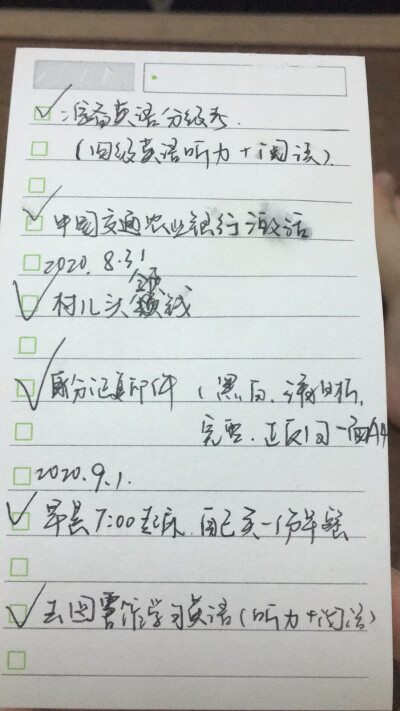 准备英语分级考.
(四级英语听力+阅读)
中国交通农业银行激活
2020.8.31
领
村儿头 钱
身份证复印件(黑白、清晰,
完整、正反同一面A4
2020.9.1.
早晨7:00起床.自己买一份早餐
去图书馆学习英语(听力+阅读)